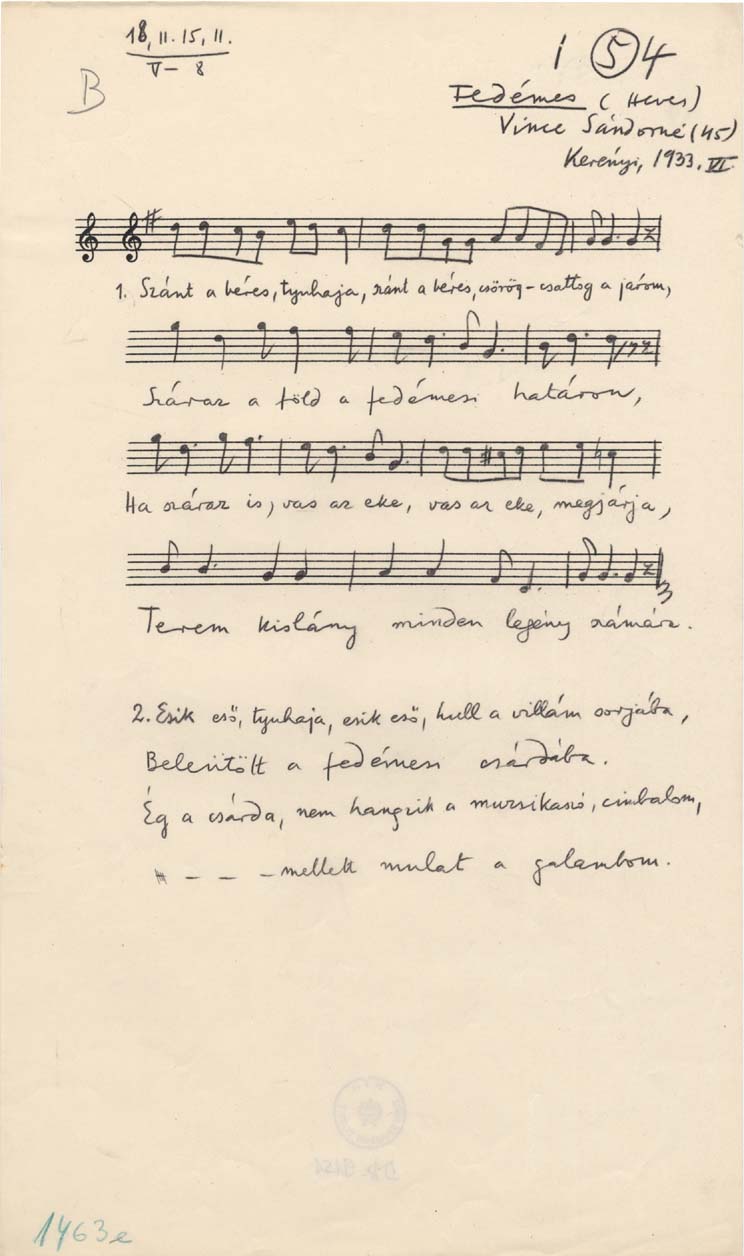 18, II. 15, II.
V – 8
B
1 5 4
Fedémes (Heves)
Vince Sándorné (45)
Kerényi, 1933. VI.
1. Szánt a béres, tyuhaja, szánt a béres, csörög-csattog a járom,
Száraz a föld a fedémesi határon,
Ha száraz is, vas az eke, vas az eke, megjárja,
3
Terem kislány minden legény számára.
2. Esik eső, tyuhaja, esik eső, hull a villám sorjába,
Beleütött a fedémesi csárdába.
Ég a csárda, nem hangzik a muzsikaszó, cimbalom,
– – – mellett mulat a galambom.
1463e